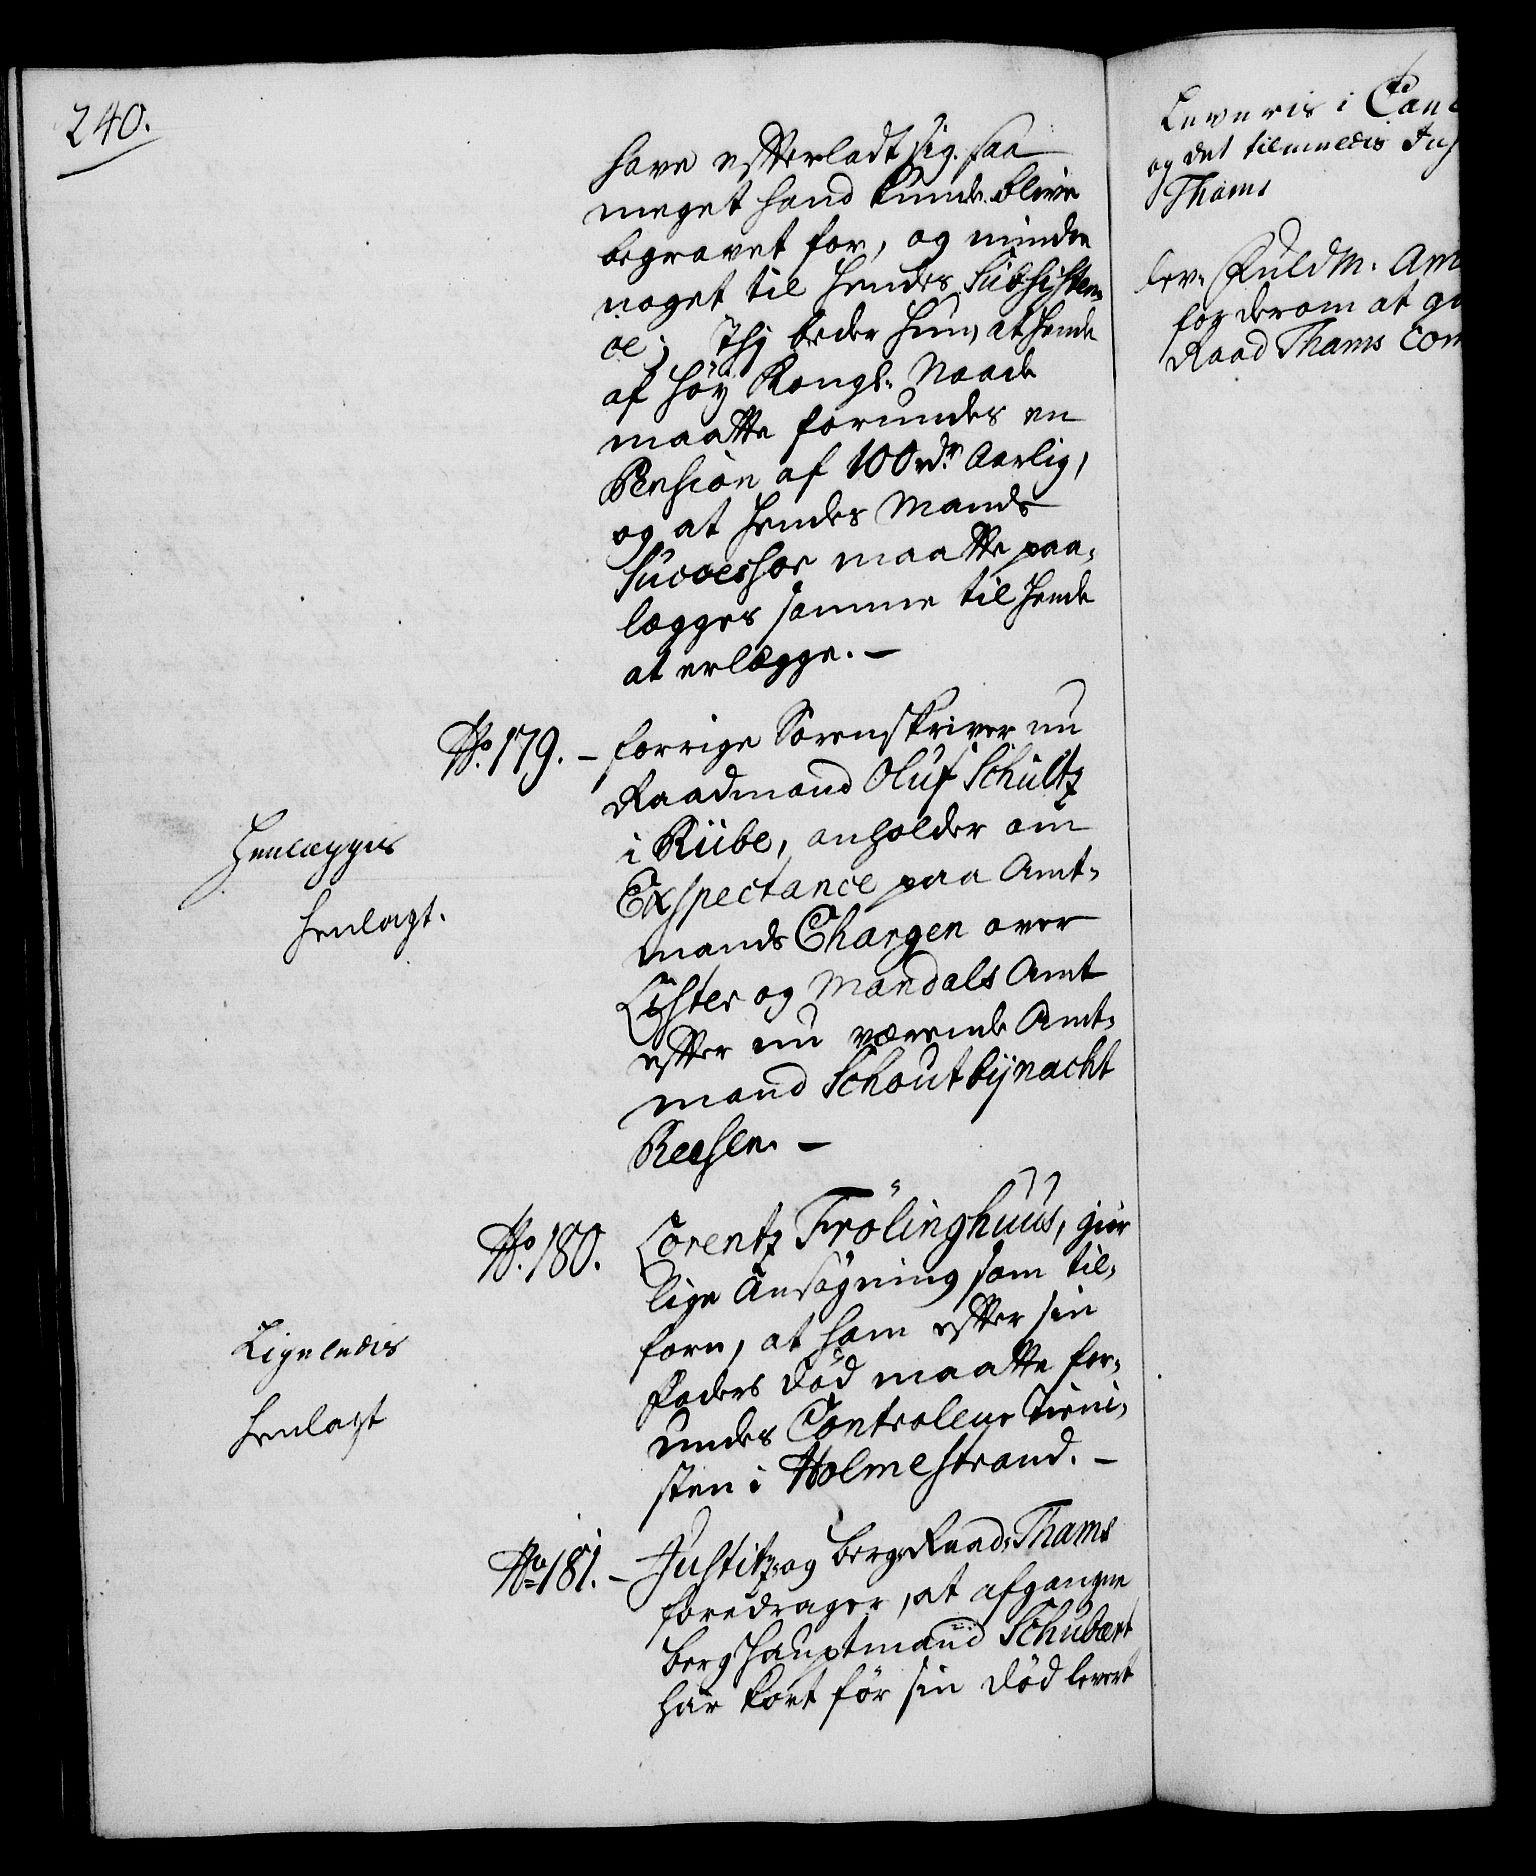 240.
have efterladt sig saa
meget hand kunde blive
begravet for, og mindre
noget til hendes Subsisten-
ce; Thj beder hun, at hende
af høy Kongl. Naade
maatte forundes en
Pension af 100 rdr. Aarlig,
og at hendes Mands
Successor maatte paa-
lægges samme til hende
at erlægge. —
No. 179. – forrige Sorenskriver nu
Raadmand Oluf Schultz
i Riibe, anholder om
Henlægges
Expectance paa Amt-
henlagt.
mands Chargen over
Lister og Mandals Amt
efter nu værende Amt-
mand Schoutbÿnacht
Reesen. —
No. 180. Lorentz Frölinghuus, giør
lige Ansøgning som til-
forn, at ham efter sin
Ligeledis
Faders død maatte for-
undes Controleur Tieni-
henlagt
sten i Holmestrand. –
No. 181. – Justitz- og berg-Raad Thams
foredrager, at afgangne
berghauptmand Schubært
har kort før sin død levert
Leveris i Canc
og det tilmeldis Jus
Thams
lev. Fuldm. Am
for derom at gi
Raad Thams Com